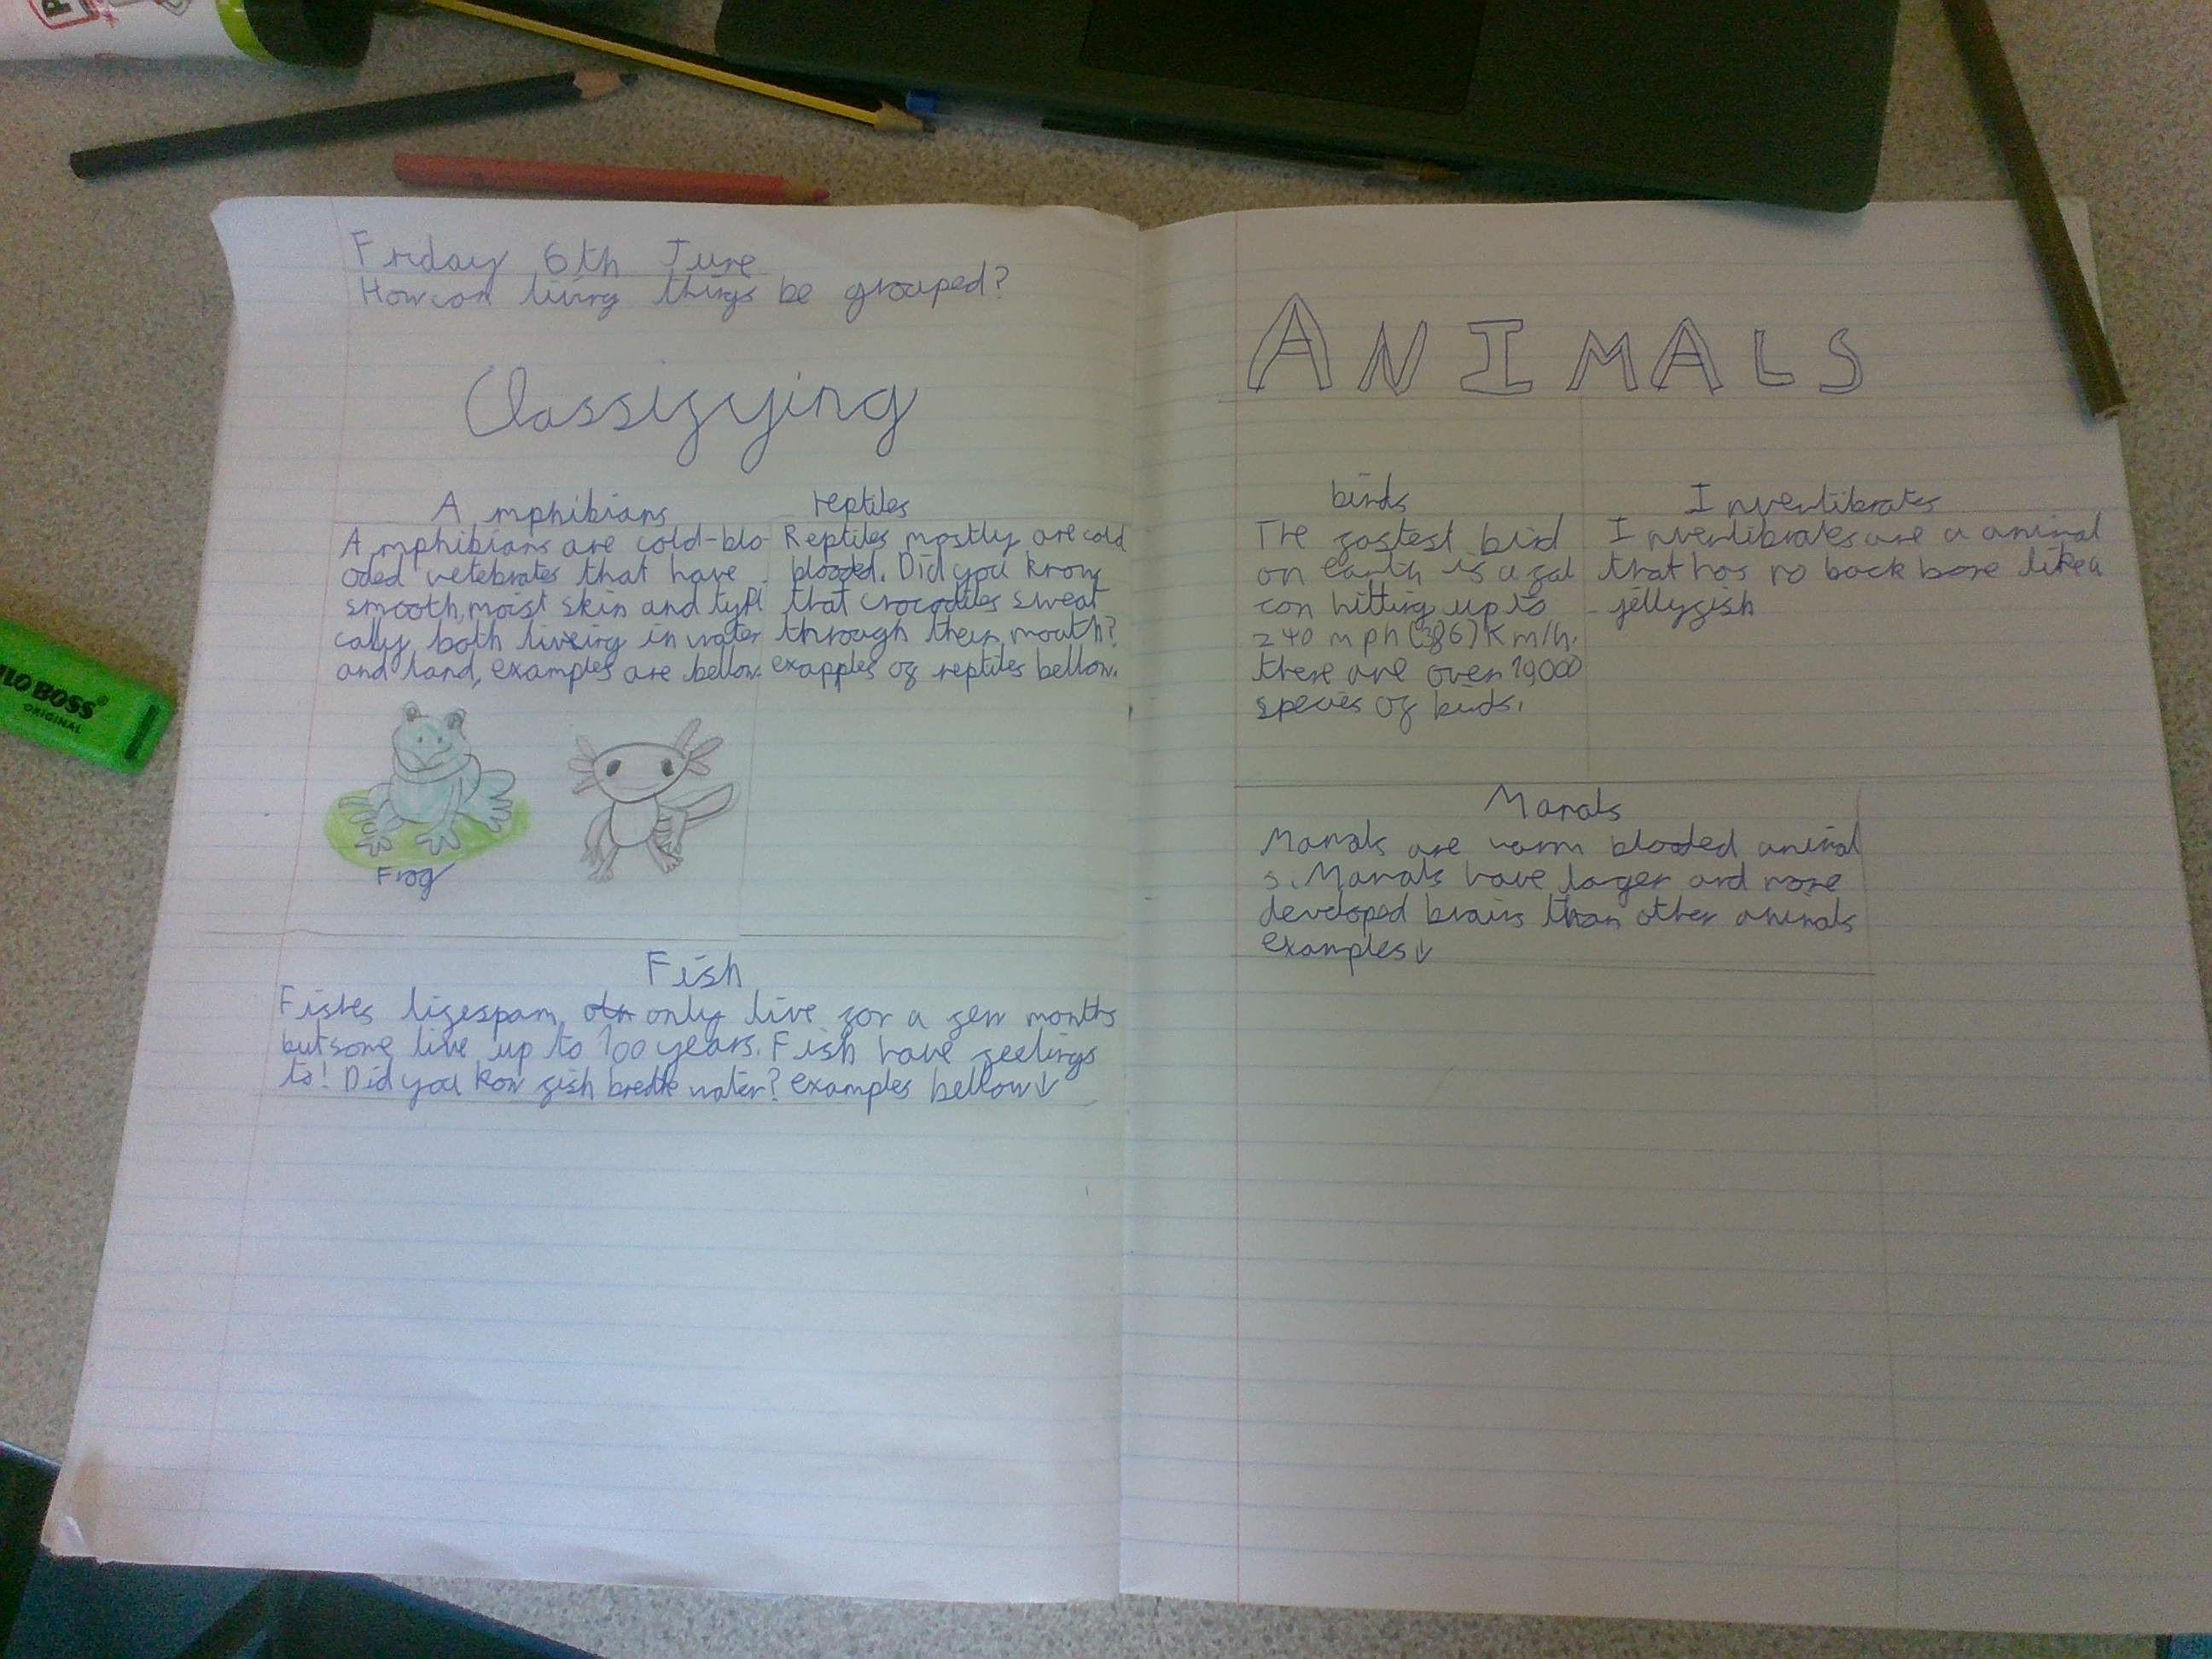 Friday 6th June
How can living things be grouped?
Classifying
Amphibians
Amphibians are cold-blo-
oded vetebrates that have
smooth, moist skin and typi
cally both living in water
and land, examples are bellow.
Frog
reptiles
Reptiles mostly are cold
blooded. Did you know
that crocodiles sweat
through their mouth?
exapples of reptiles bellow.
Fish
Fishes lifespam only live for a few months
but some live up to 100 years. Fish have feelings
to! Did you kow fish breathe water? examples bellow↓
ANIMALS
birds
The fastest bird
on earth is a fal
con hitting up to
240 mph (386) Km/h.
there are over 10,000
species of birds.
Invertibrates
Invertibrates are a animal
that has no back bone like a
jellyfish
Mamals
Mamals are warm blooded animal
s. Mamals have larger and more
developed brains than other animals
examples↓
BOSS
ORIGINAL